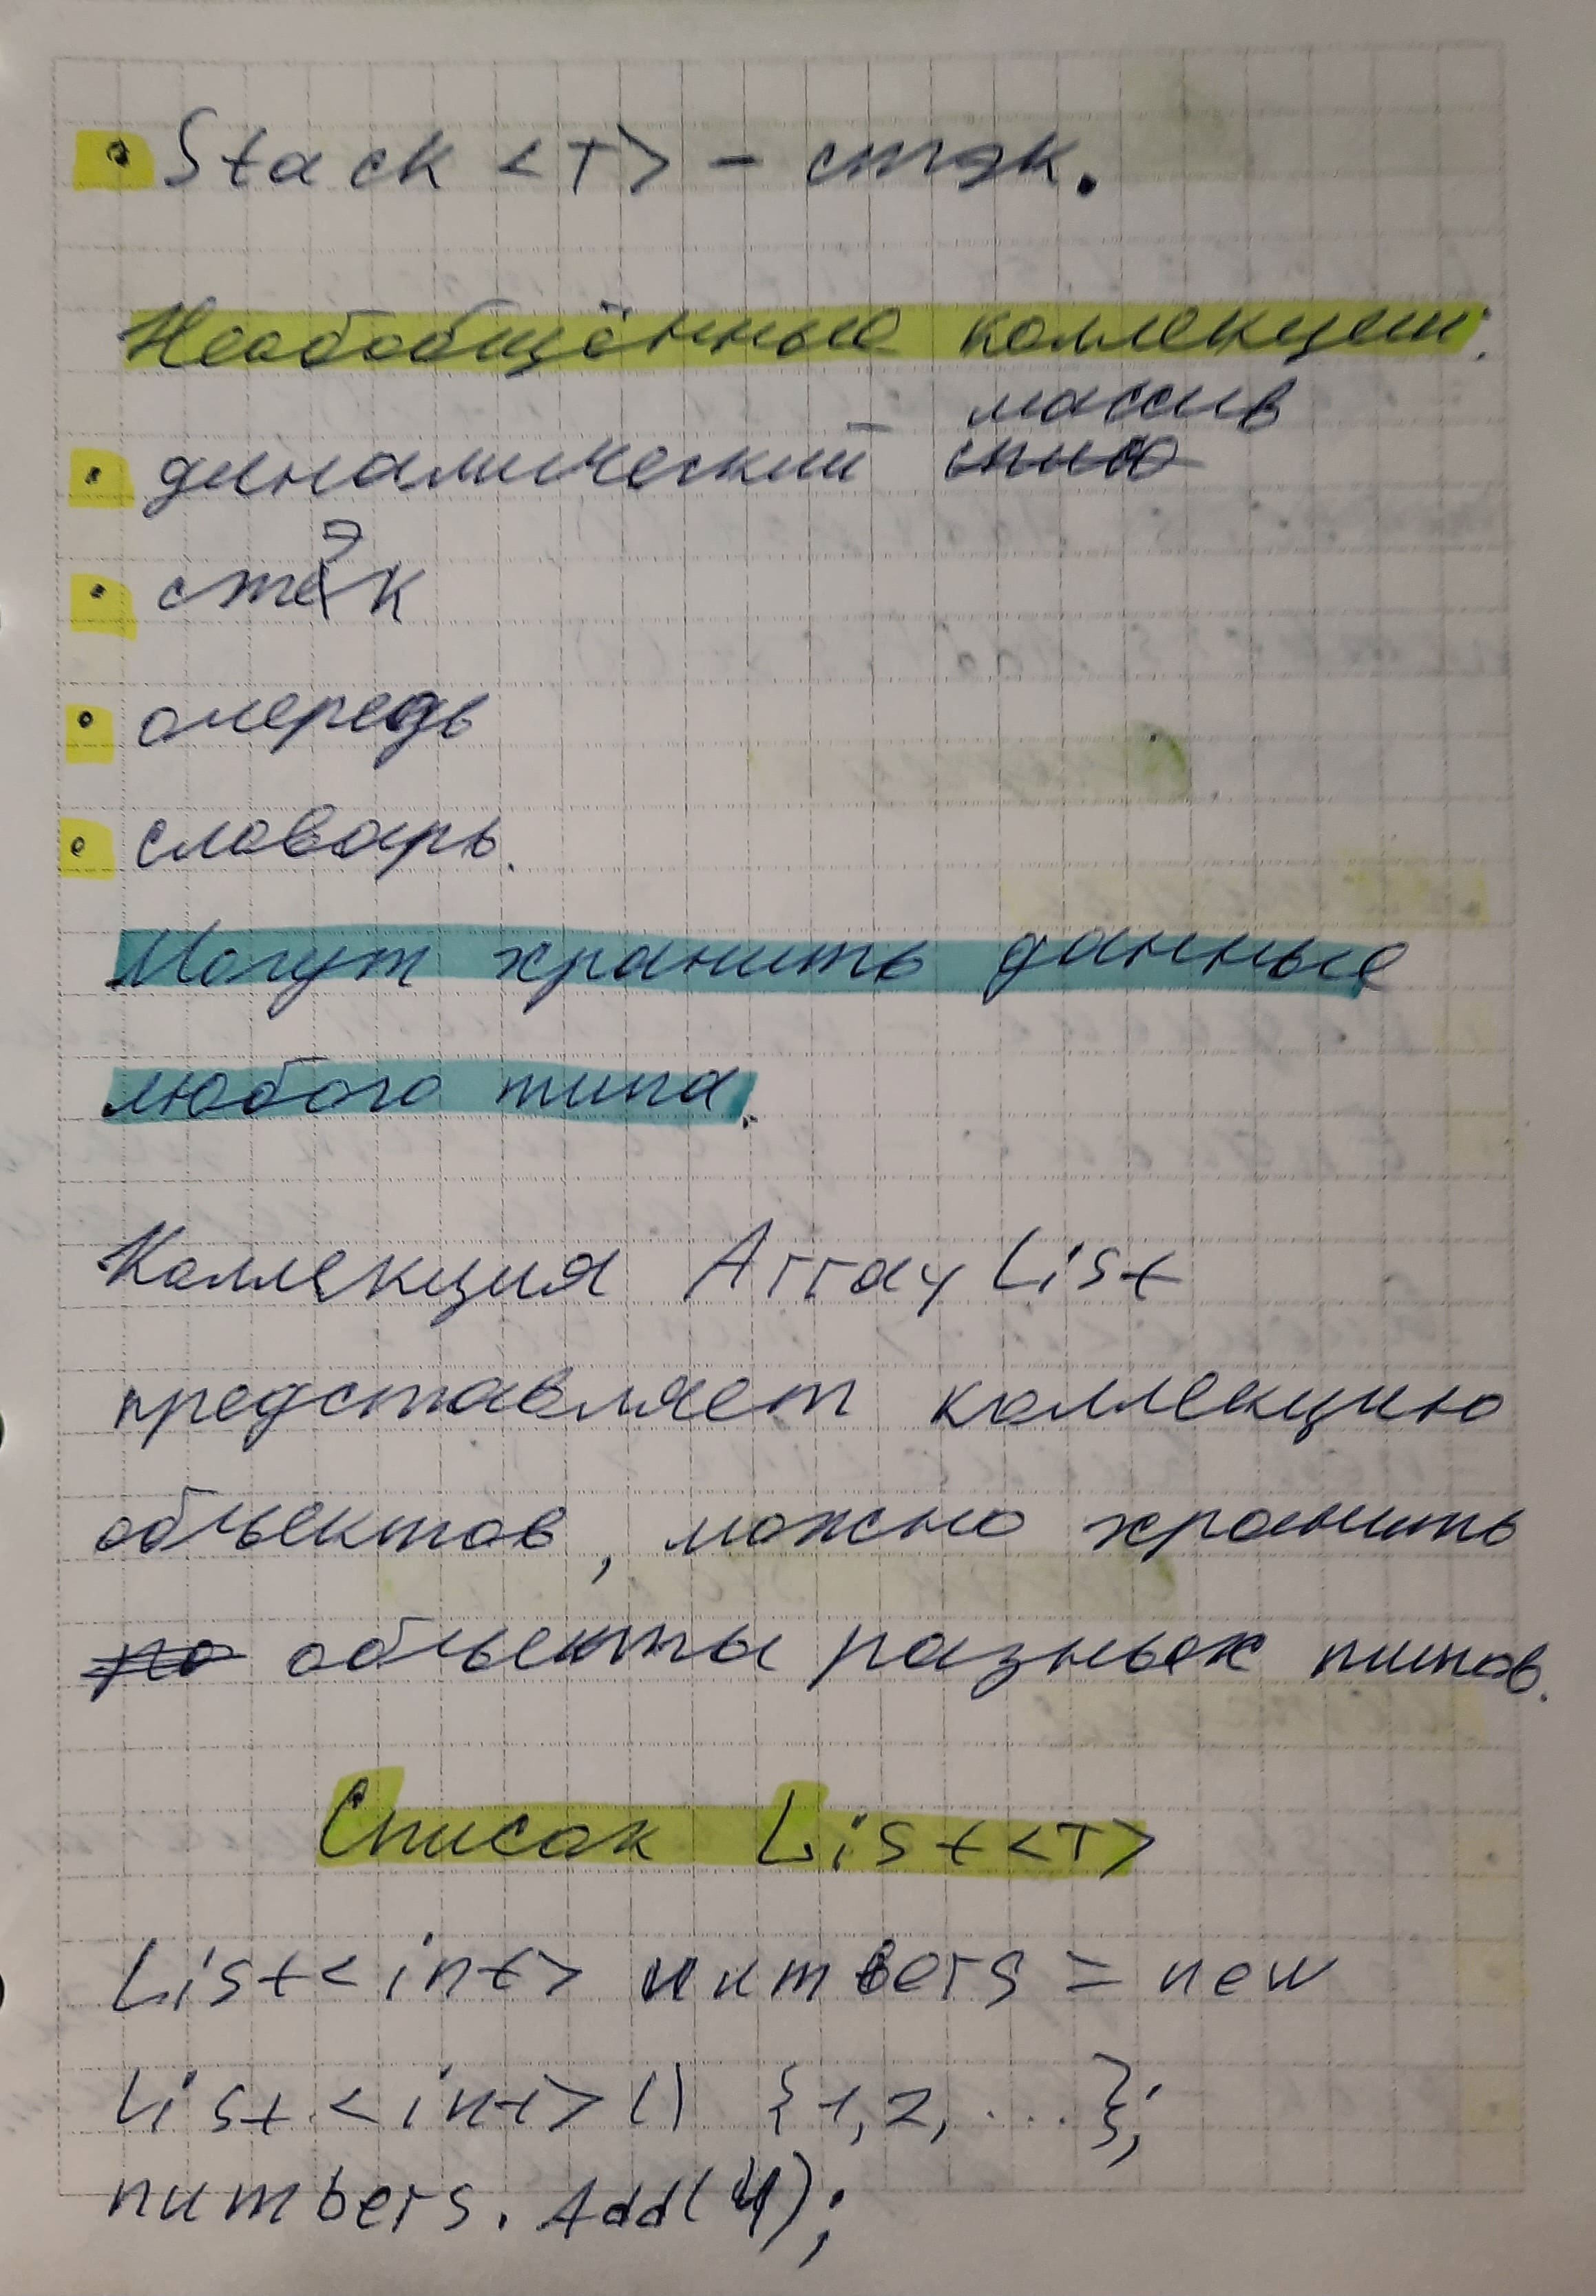 • Stack <T> - стэк.
Необобщённые коллекции:
• динамический массив
• стэк
• очередь
• словарь.
Могут хранить данные
любого типа.
Коллекция ArrayList
представляет коллекцию
объектов, можно хранить
объекты разных типов.
Список List<T>
List<int> numbers = new
List<int>() {1,2,...};
numbers.Add(4);